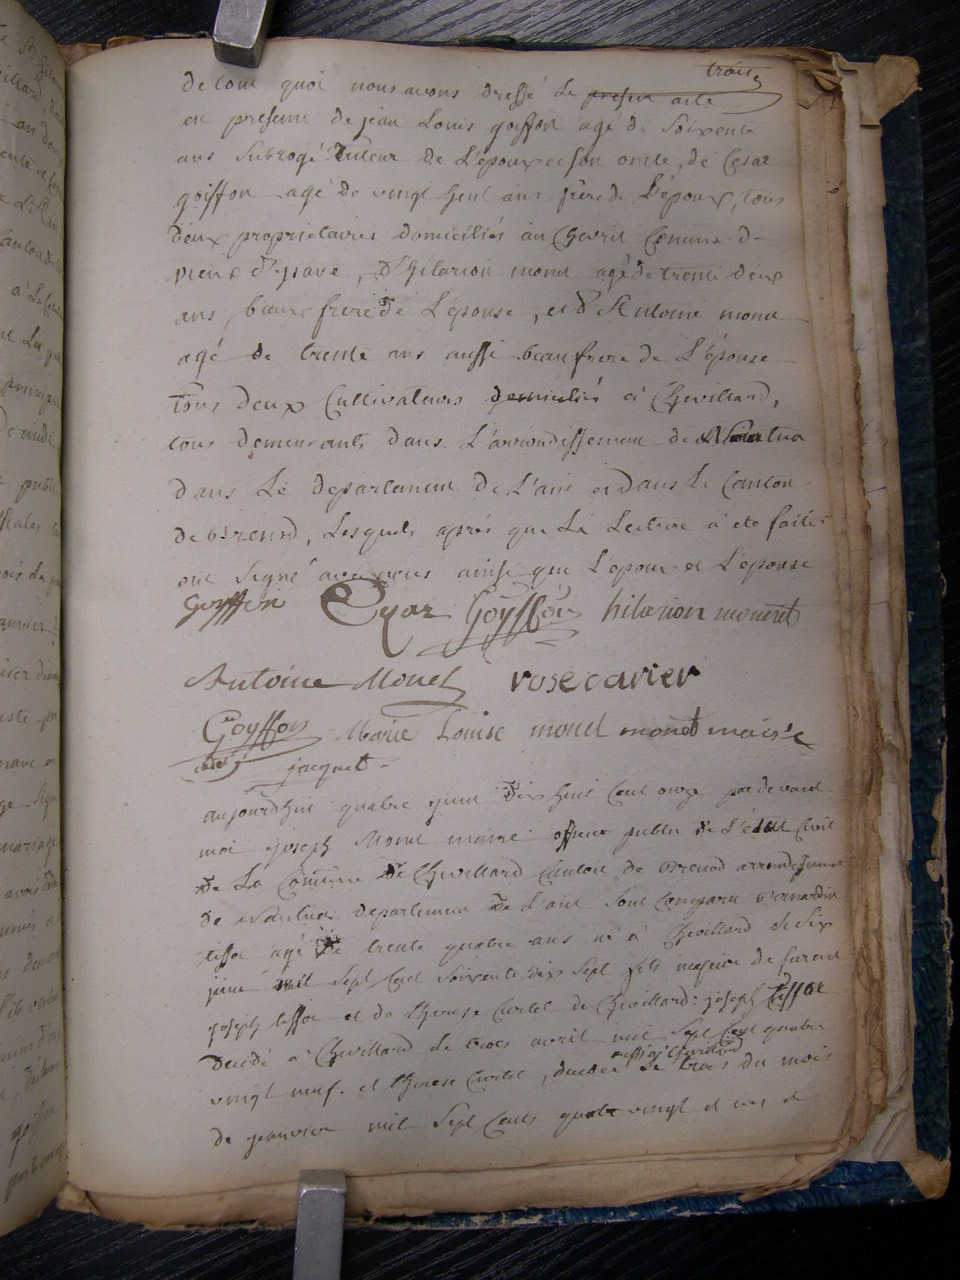 trois
de tout quoi nous avons dressé le presen acte
en presence de jean Louis goiffon agé de Soixente
ans Subrogé Tuteur de L'époux et son oncle, de Cesar
goiffon agé de vingt huit ans frère de L'époux, tous
deux propriétaires domiciliés au Chevril Comune d-
vieux d'Izave, d'hilarion monet agé de trente deux
ans, beaux frere de L'épouse, et d'Antoine monet
agé de trente ans aussi beau frere de L'épouse
Tous deux Cultivateurs domiciliés à Chevillard,
tous demeurants dans L'arrondissement de Nantua
dans Le departement de L'ain et dans Le Canton
de Brenod, Lesquels après que La Lecture a eté faite
ont Signé avec nous ainsi que L'epoux et L'épouse
Goyffon Cezar Goÿffon hilarion monnet
Antoine Monet rose carier
Goyffon Marie Louise monet monet mair
jacquet
aujourdhui quatre juin dix huit Cent onze par devant
moi joseph Monet maire officier public de L'état Civil
de La Comune de Chevillard Canton de Brenod arrondissement
de Nantua departement de L'ain Sont Comparu Bernardin
tissot agé de trente quatre ans né à Chevillard le Six
juin mil Sept Cent Soixente dix Sept fils majeur de furent
joseph tissot et de therese Curtet de Chevillard: joseph tissot
decédé à Chevillard Le trois avril mil Sept Cent quatre
vingt neuf. et therese Curtet, decedée Le trois du mois
de janvier mil Sept Cents quatre vingt et un et